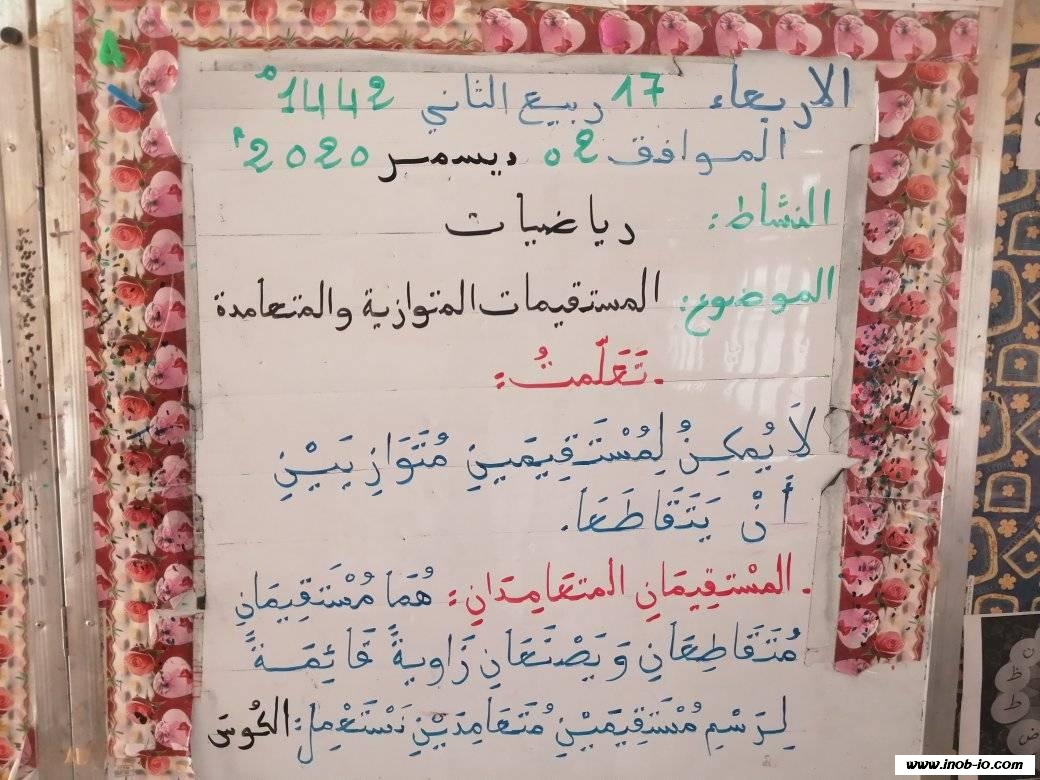 الاربعاء 17 ربيع الثاني 1442 ه
الموافق 02 ديسمبر 2020 م
النشاط: رياضيات
الموضوع: المستقيمات المتوازية والمتعامدة
. تَعَلّمتُ:
لاَ يُمكِنُ لِمُسْتَقِيمَينِ مُتَوَازِيَيْنِ
أَنْ يَتَقَاطَعَا.
. المسْتقِيمَانِ المتعَامِدَانِ: هُمَا مُسْتَقِيمَانِ
مُتَقَاطِعَانِ وَيَصْنَعَانِ زَاوِيةً قَائِمَةً
لِرَسْمِ مُسْتَقِيمَيْنِ مُتَعَامِدَيْنِ نَسْتَعْمِلُ: الكُوسَ
A
ن
ظ
ط
ض
www.inob-io.com